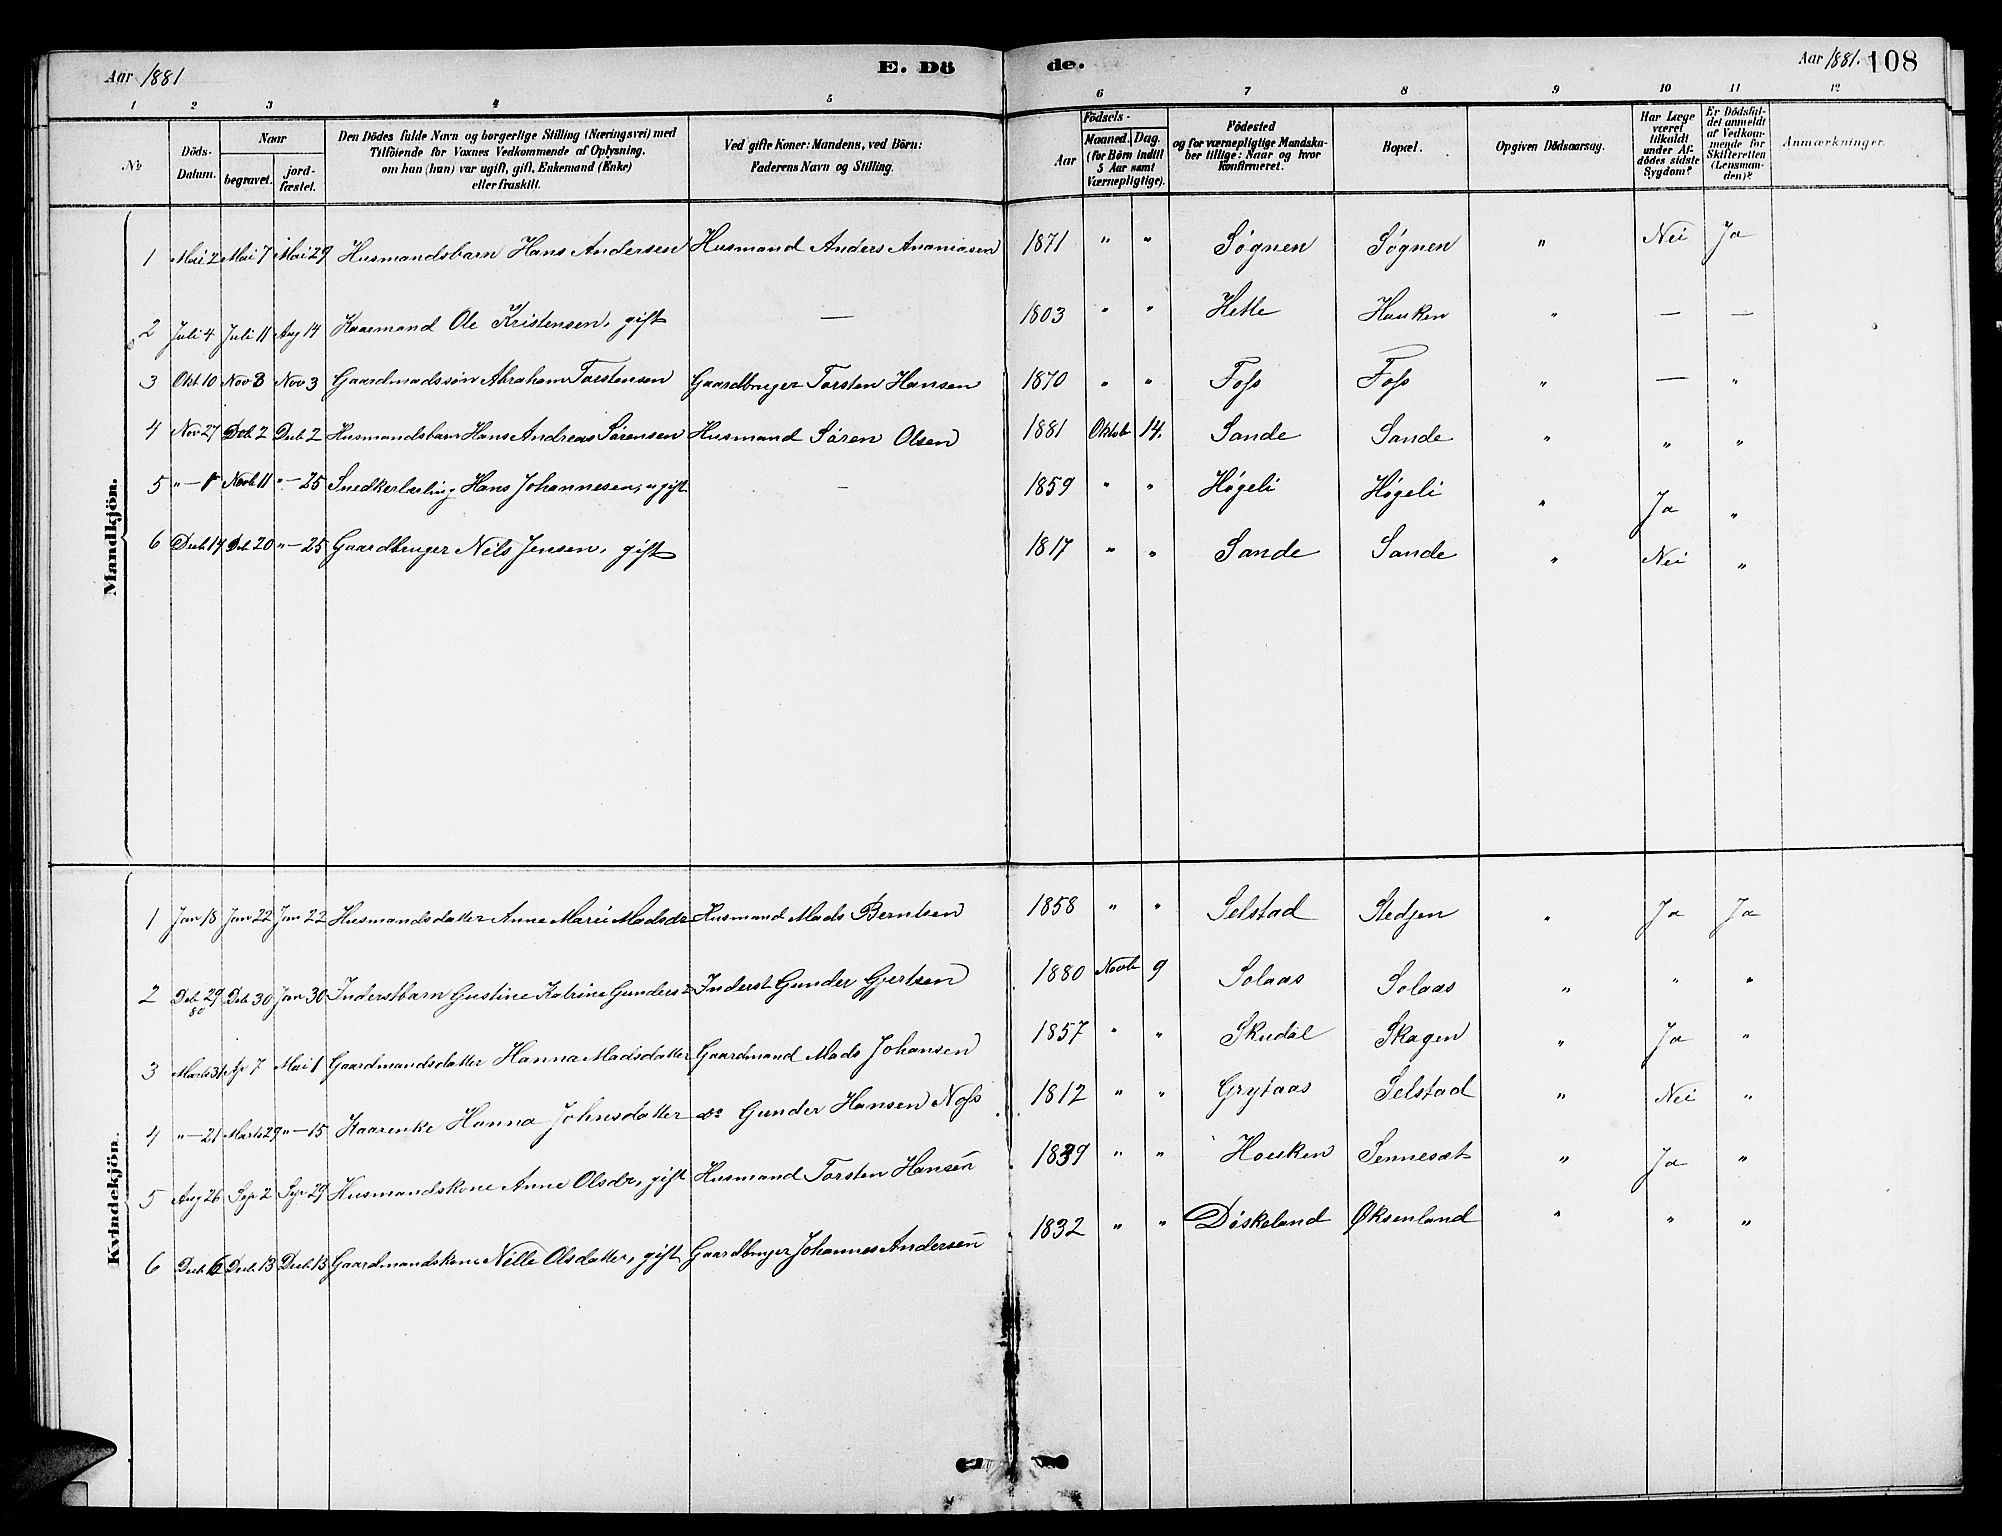 Aar 1881
E. Dö
de.
Aar 1881. 108
1 2 3 4 5 6 7 8 9 10 11 12
№
Döds-Datum.
Naar
begravet.
jordfæstet.
Den Dödes fulde Navn og borgerlige Stilling (Næringsvei) med
Tilföiende for Voxnes Vedkommende af Oplysning.
om han (hun) var ugift, gift, Enkemand (Enke)
eller fraskilt.
Ved gifte Koner: Mandens, ved Börn:
Faderens Navn og Stilling.
Födsels-
Aar
Maaned. Dag.
(for Börn indtil
5 Aar samt
Værnepligtige).
Födested
og for værnepligtige Mandskaber tillige: Naar og hvor
Konfirmeret.
Bopæl.
Opgiven Dödsaarsag.
Har Læge
været
tilkaldt
under Afdödes sidste
Sygdom?
Er Dödsfaldet anmeldt
af Vedkommende for
Skifteretten
(Lensmanden)?
Anmærkninger.
Mandkjön.
1 Mai 2 Mai 7 Mai 29 Husmandsbarn Hans Andersen Husmand Anders Ananiasen 1871 " " Søgnen Søgnen " Nei Ja
2 Juli 4 Juli 11 Aug 14 Kaarmand Ole Kristensen, gift — 1803 " " Hette Hauken " — —
3 Okt 10 Nov 3 Nov 3 Gaardmadssøn Abraham Torstensen Gaardbruger Torsten Hansen 1870 " " Foss Foss " — "
4 Nov 27 Deb 2 Decb. 2 Husmandsbarn Hans Andreas Sørensen Husmand Søren Olsen 1881 Oktob 14. Sande Sande " " "
5 "— 1 Novb 11 "— 25 Snedkerlærling Hans Johannesen, ugift — 1859 " " Høgeli Høgeli " Ja "
6 Decb 14 Deb 20 "— 25 Gaardbruger Nils Jensen, gift 1817 " " Sande Sande " Nei "
Kvindekjön.
1 Jan 18 Jan 22 Jan 22 Husmandsdatter Anne Marie Madsdr Husmand Mads Berntsen 1858 " " Selstad Stedjen " Ja Ja
2 Deb 29 80 Deb 30 Jan 30 Inderstbarn Gustine Katrine Gundersd Inderst Gunder Gjertsen 1880 Novb 9 Solaas Solaas " " "
3 Marts 31 Ap 7 Mai 1 Gaardmandsdatter Hanna Madsdatter Gaardmand Mads Johansen 1857 " " Skudal Skagen " Ja "
4 "— 21 Marts 29 "— 15 Kaarenke Hanna Johnsdatter do Gunder Hansen Noss 1812 " " Grytaas Selstad " Nei "
5 Aug 26 Sep 2 Sep 29 Husmandskone Anne Olsdr, gift Husmand Torsten Hansen 1839 " " Houken Sennesæt " Ja "
6 Decb 6 Decb. 13 Decb 13 Gaardmandskone Nille Olsdatter, gift Gaardbruger Johannes Andersen 1832 " " Diskeland Øksenland " " "